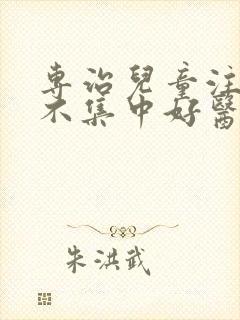 專治兒童注
不集中好醫
朱洪武